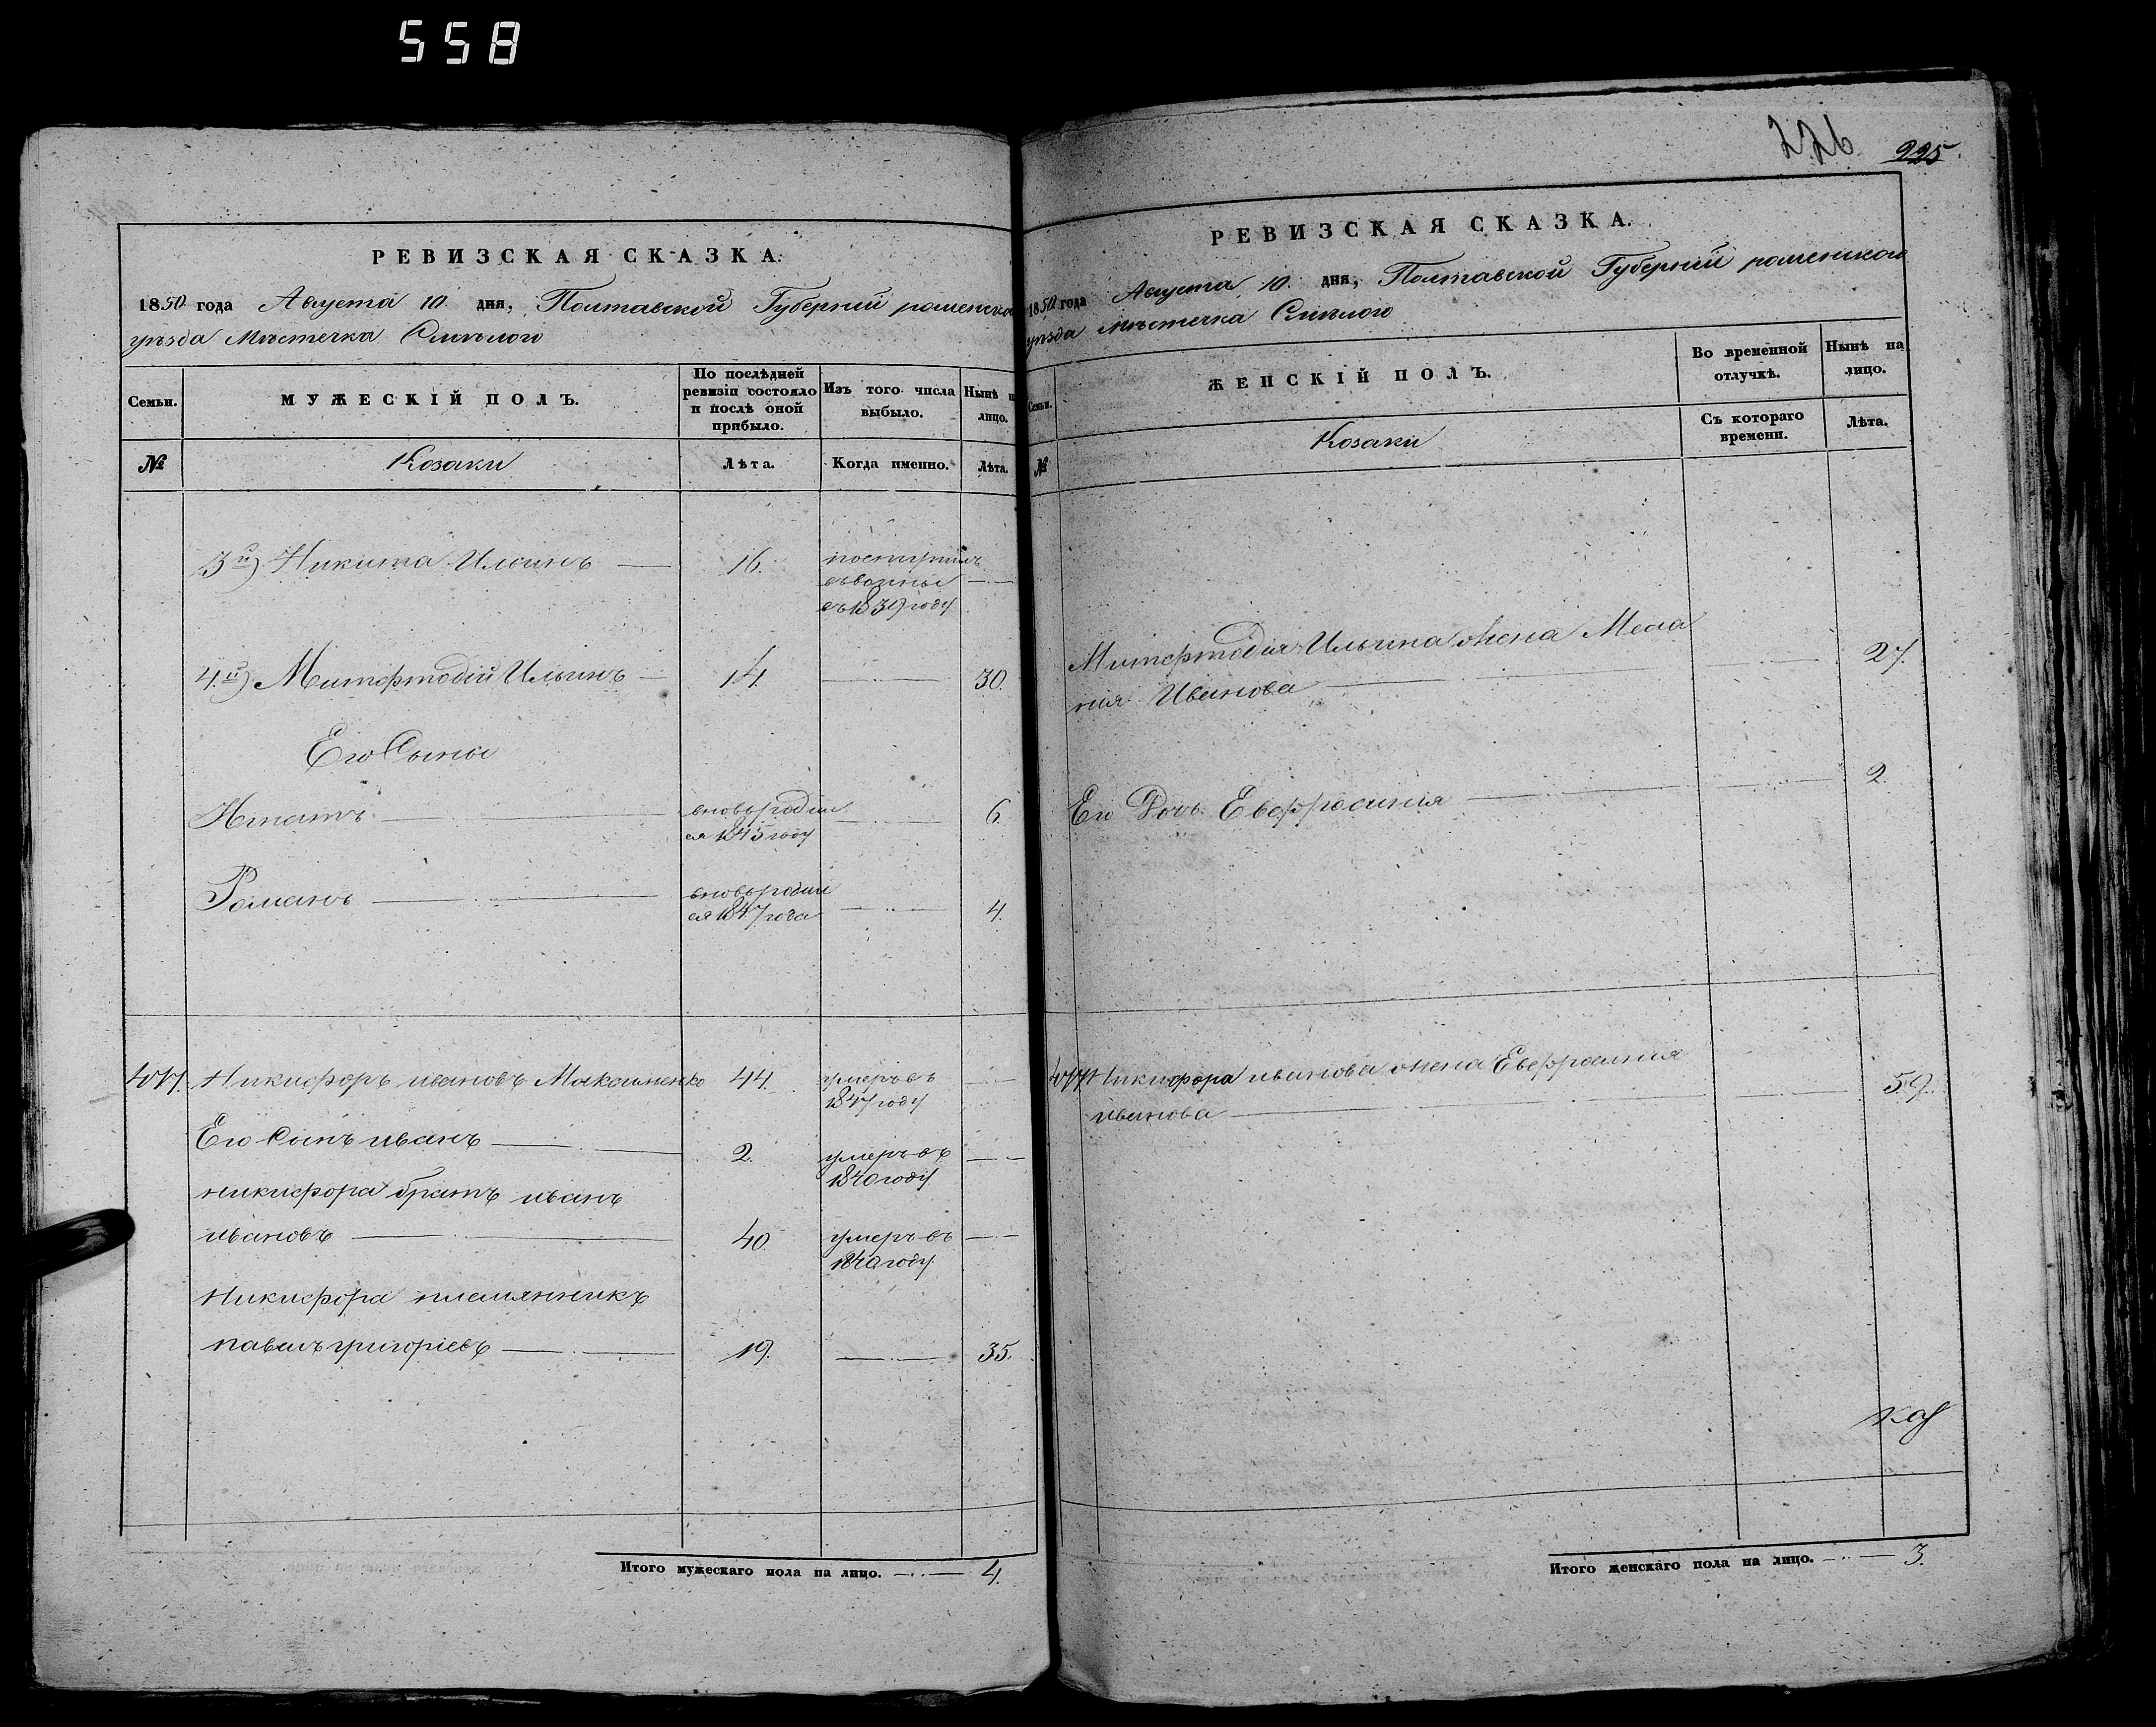 558
РЕВИЗСКАЯ СКАЗКА.
1850 года Августа 10. дня, Полтавской Губерніи роменска
уѣзда Мѣстечка Смѣлого
Семьи.
МУЖЕСКІЙ ПОЛЪ.
По послѣдней ревизіи состояло и послѣ оной прибыло.
Изъ того числа выбыло.
Нынѣ н лицо.
№
Козаки
Лѣта.
Когда именно.
Лѣта.
3й) Никита Ильинъ 16.
въ 1839 году
4.й) Митефтодій Ильинъ 14 30.
Его Сыны
Игнатъ вновь родил 6.
ся 1845 году
Романъ вновь родил
ся 1847 года 4.
Никифоръ ивановъ Максименко 44. умеръ въ
1847 году
Его Сынъ иванъ 2. умеръ въ
1840 году
никифора братъ иванъ
ивановъ 40 умеръ въ
1840 году
Никифора племянникъ
павелъ григоріевъ 19. 35.
Итого мужескаго пола на лицо. 4.
226 225
РЕВИЗСКАЯ СКАЗКА.
1850 года Августа 10. дня, Полтавской Губерніи роменского
уѣзда мѣстечка Смѣлого
Семьи.
ЖЕНСКІЙ ПОЛЪ.
Во временной отлучкѣ.
Нынѣ на лицо.
Съ котораго времени.
Лѣта.
№
Козаки
Митефтодія Ильина жена Мела 27.
нія Иванова
Его Дочь Евфросинія 2.
Никифора иванова жена Евфросинія 59.
иванова
Итого женскаго пола на лицо. 3.